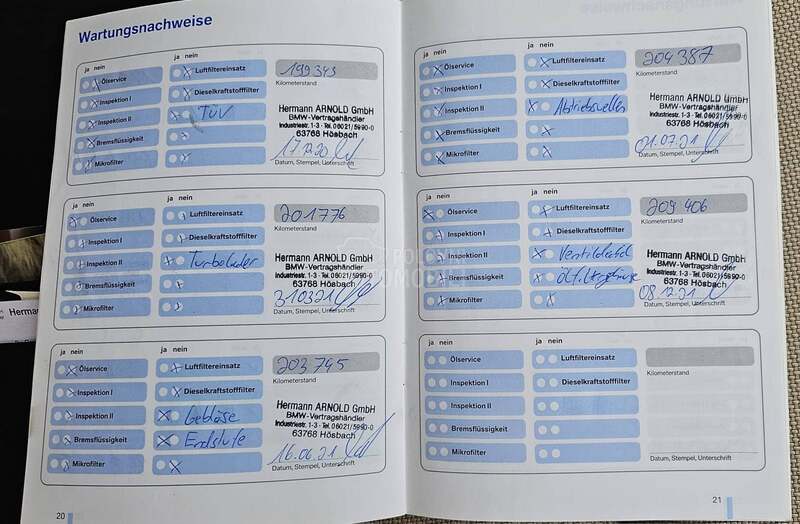 Wartungsnachweise
ja nein
ja nein
Ölservice
Luftfiltereinsatz
199 343
Kilometerstand
Inspektion I
Dieselkraftstofffilter
Inspektion II
TÜV
Bremsflüssigkeit
Mikrofilter
Hermann ARNOLD GmbH
BMW-Vertragshändler
Industriestr. 1-3 · Tel. 06021/5990-0
63768 Hösbach
Datum, Stempel, Unterschrift
ja nein
ja nein
Ölservice
Luftfiltereinsatz
201776
Kilometerstand
Inspektion I
Dieselkraftstofffilter
Inspektion II
Turbolader
Bremsflüssigkeit
Mikrofilter
Hermann ARNOLD GmbH
BMW-Vertragshändler
Industriestr. 1-3 · Tel. 06021/5990-0
63768 Hösbach
310321
Datum, Stempel, Unterschrift
ja nein
ja nein
Ölservice
Luftfiltereinsatz
203 745
Kilometerstand
Inspektion I
Dieselkraftstofffilter
Inspektion II
Gebläse
Bremsflüssigkeit
Endstufe
Mikrofilter
Hermann ARNOLD GmbH
BMW-Vertragshändler
Industriestr. 1-3 · Tel. 06021/5990-0
63768 Hösbach
16.06.21
Datum, Stempel, Unterschrift
20
ja nein
ja nein
Ölservice
Luftfiltereinsatz
204 387
Kilometerstand
Inspektion I
Dieselkraftstofffilter
Inspektion II
Abtriebswellen
Bremsflüssigkeit
Mikrofilter
Hermann ARNOLD GmbH
BMW-Vertragshändler
Industriestr. 1-3 · Tel. 06021/5990-0
63768 Hösbach
01.07.21
Datum, Stempel, Unterschrift
ja nein
ja nein
Ölservice
Luftfiltereinsatz
209 406
Kilometerstand
Inspektion I
Dieselkraftstofffilter
Inspektion II
Bremsflüssigkeit
Mikrofilter
Hermann ARNOLD GmbH
BMW-Vertragshändler
Industriestr. 1-3 · Tel. 06021/5990-0
63768 Hösbach
08.12.21
Datum, Stempel, Unterschrift
ja nein
ja nein
Ölservice
Luftfiltereinsatz
Kilometerstand
Inspektion I
Dieselkraftstofffilter
Inspektion II
Bremsflüssigkeit
Mikrofilter
Datum, Stempel, Unterschrift
21